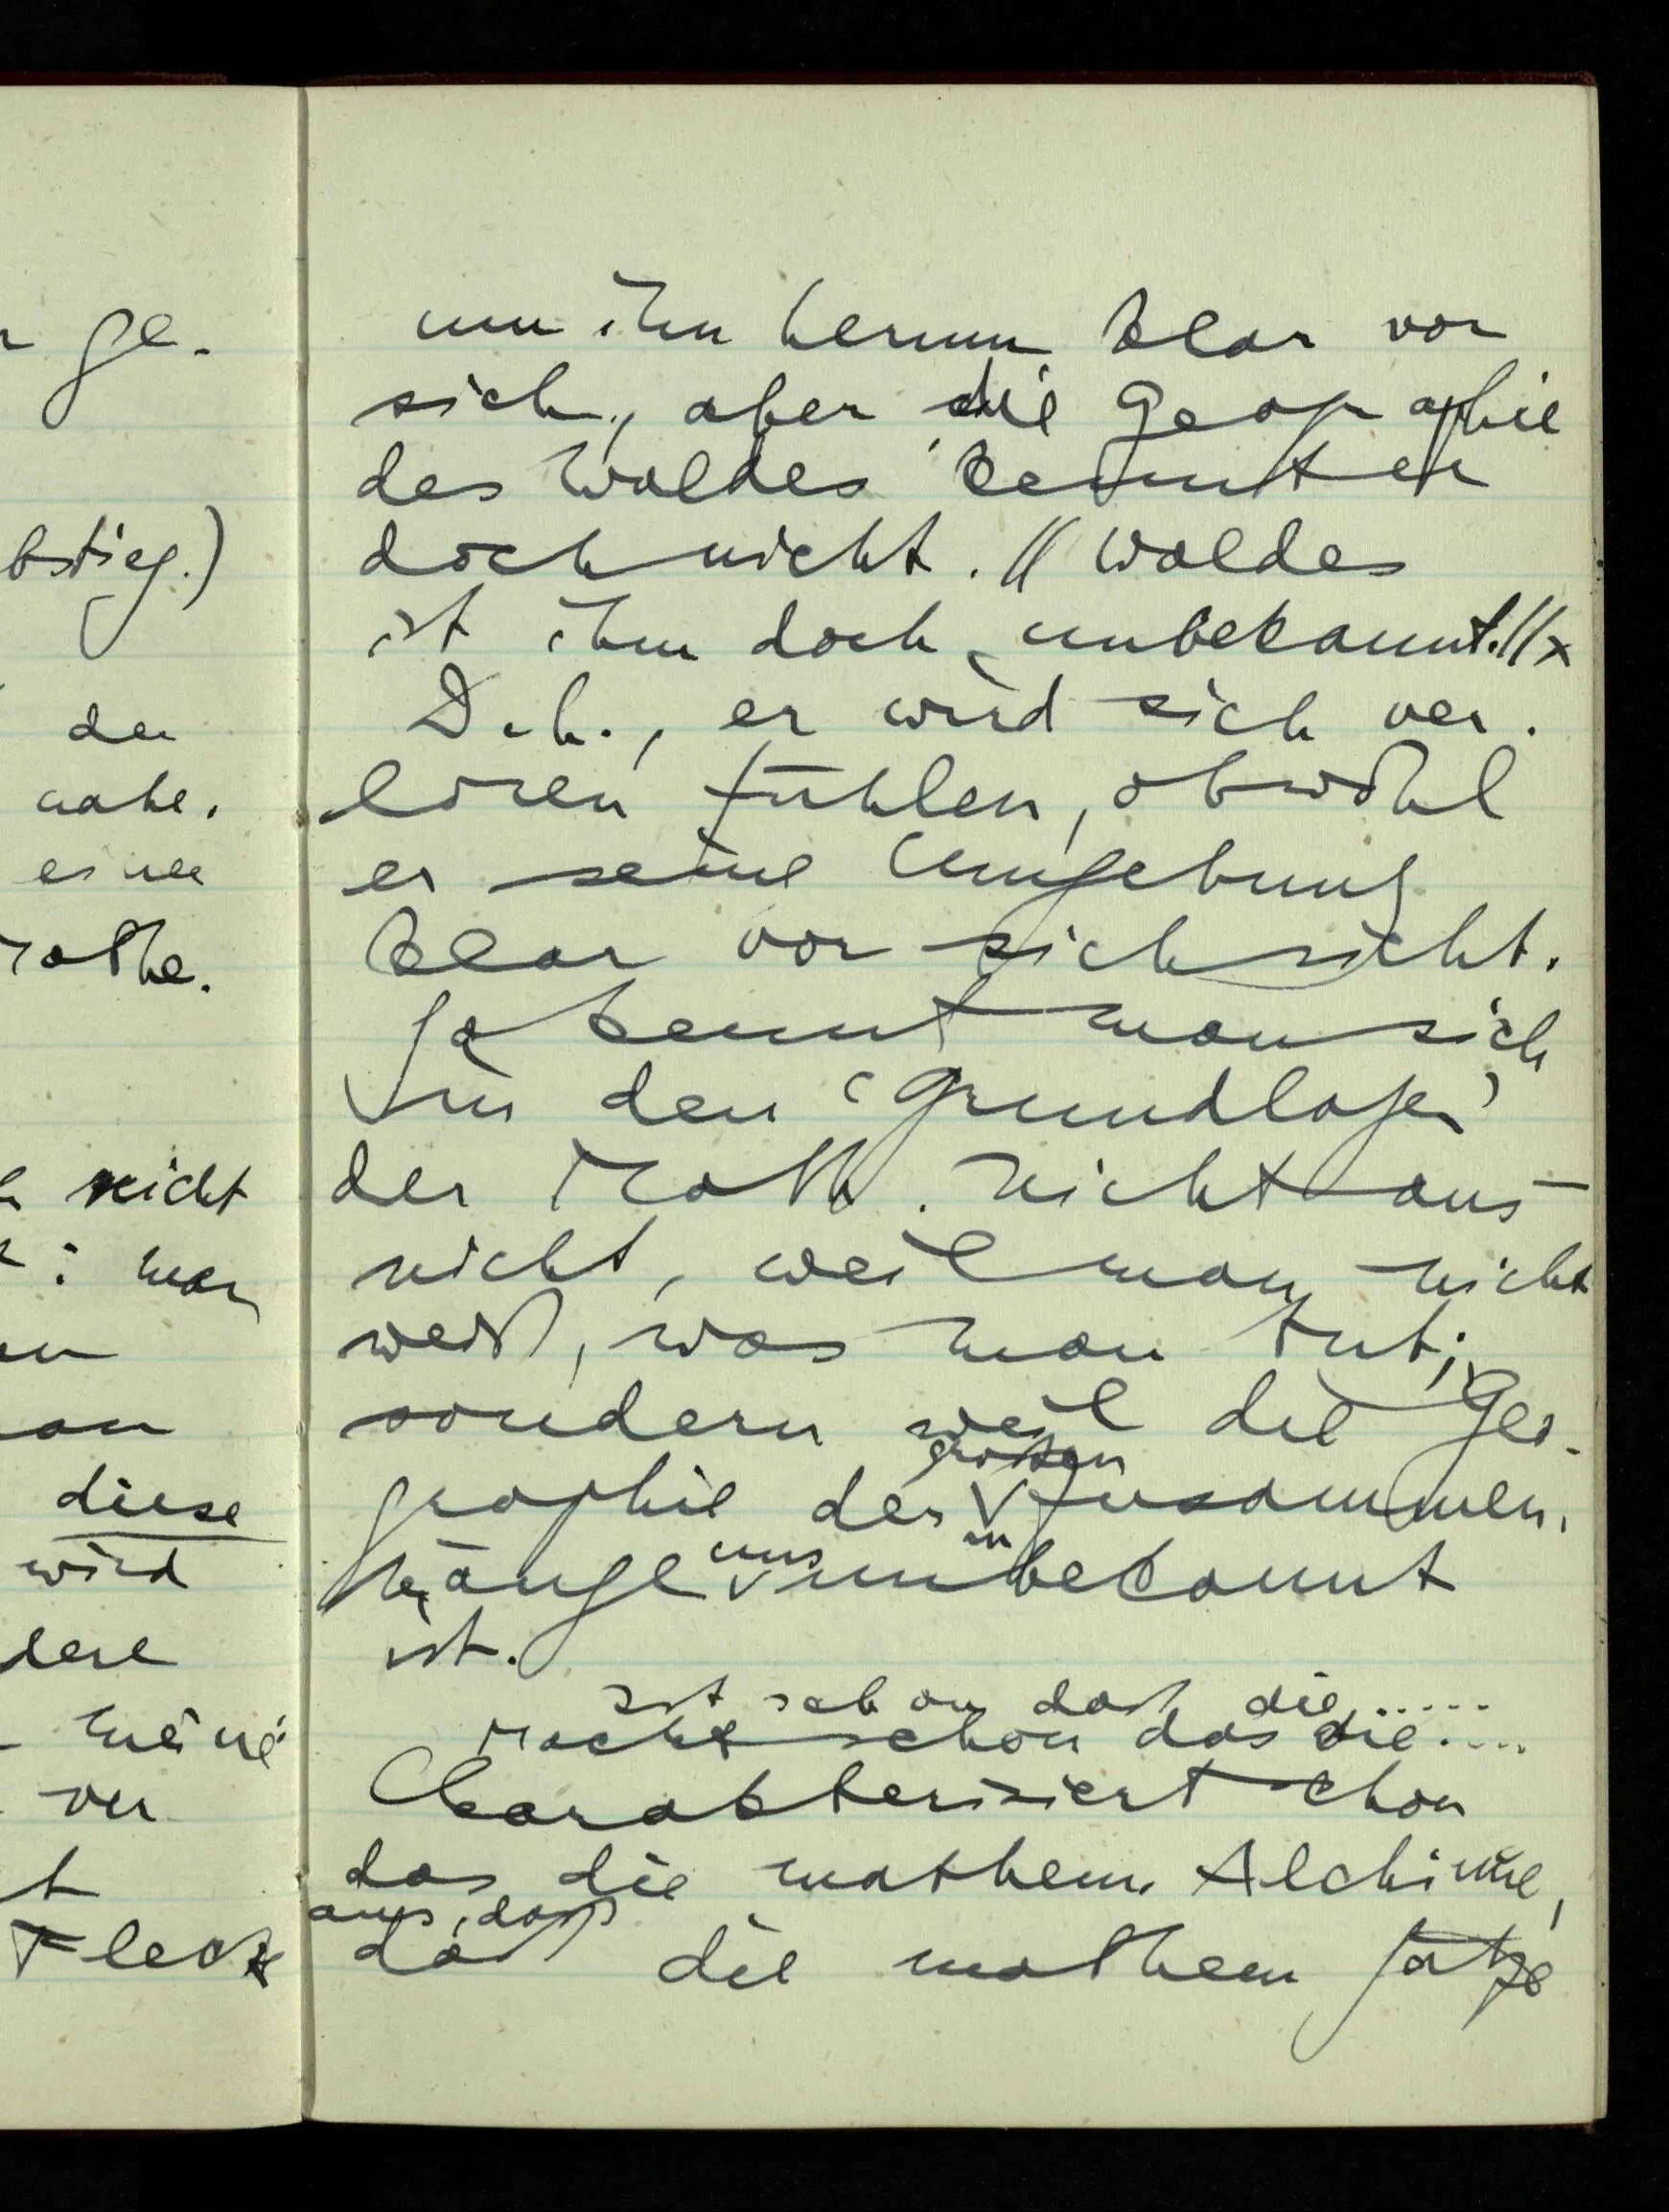 n ge-
bstieg.)
den
nahe,
einen
Mathe.
nicht
: man
en
an
diese
wird
dere
meine
ver
t
Fleck
um ihn herum klar vor
sich, aber die Geographie
des Waldes kennt er
doch nicht. // Waldes
ist ihm doch unbekannt.//x
D.h., er wird sich ver-
loren fühlen, obwohl
er seine Umgebung
klar vor sich sieht.
So kennt man sich
in den ‘Grundlagen’
der Math. nicht aus –
nicht, weil man nicht
weiß, was man tut;
sondern weil die Geo-
großen
graphie der Zusammen-
uns
hänge unbekannt
ist.
Ist schon daß die.....
Macht schon das die....
Charakterisiert schon
das die mathem Alchimie,
aus, daß
daß die mathem Sätze